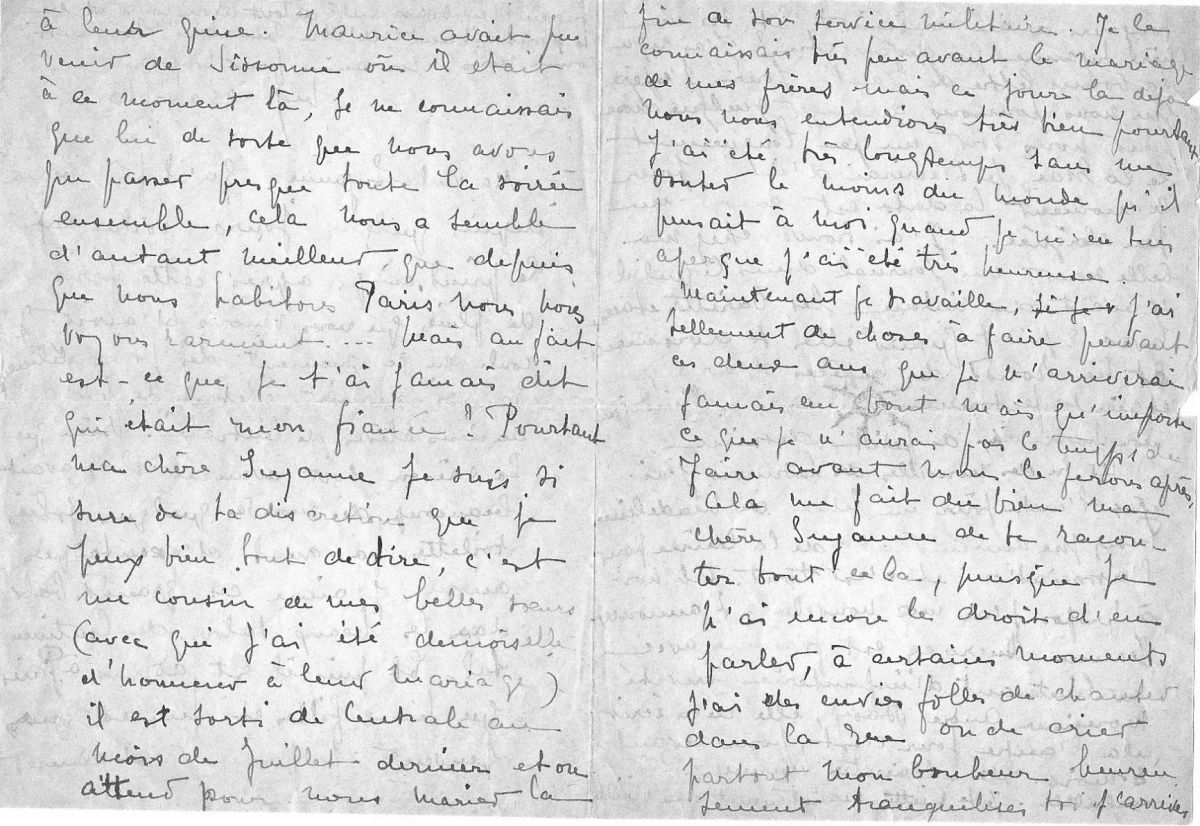 à leur guise. Maurice avait pu
venir de Sissonne où il était
à ce moment là, Je ne connaissais
que lui de sorte que nous avons
pu passer presque toute la soirée
ensemble, cela nous a semblé
d'autant meilleur que depuis
que nous habitons Paris nous nous
voyons rarement .... Mais au fait
est-ce que je t'ai jamais dit
qui était mon fiancé? Pourtant
ma chère Suzanne je suis si
sure de ta discretion que je
peux bien tout te dire, c'est
un cousin de mes belles sœurs
(avec qui j'ai été demoiselle
d'honneur à leur mariage)
il est sorti de Centrale au
mois de Juillet dernier et on
attend pour nous marier la
fin de son service militaire. Je le
connaissais très peu avant le mariage
de mes frères mais ce jour là déjà
nous nous entendions très bien pourtant
J'ai été très longtemps sans me
douter le moins du monde qu'il
pensait à moi quand je m'en suis
aperçue j'ai été très heureuse.
Maintenant je travaille, si je j'ai
tellement de choses à faire pendant
ces deux ans que je n'arriverai
jamais au bout mais qu'importe
ce que je n'aurai pas le temps de
faire avant nous le ferons après,
Cela me fait du bien ma
chère Suzanne de te racon-
ter tout cela, puisque je
n'ai encore le droit d'en
parler, à certains moments
j'ai des envies folles de chanter
dans la rue ou de crier
partout mon bonheur heureu
sement tranquilises toi j'arrives